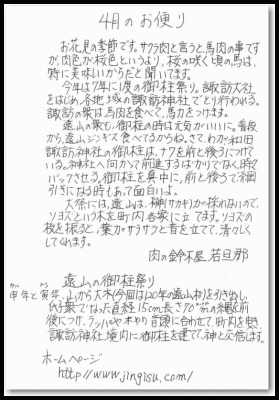 4月のお便り
お花見の季節です。サクラ肉と言うと、馬肉の事です
が、肉色が桜色というより、桜の咲く頃の馬は、
特に美味しいからだと聞いてます。
今年は7年に1度の御柱祭り。諏訪大社
をはじめ、各地域の諏訪神社でとり行われる。
諏訪の衆は、馬肉を食べて、馬力をつけます。
遠山の衆も、御柱の時は元気がいいに。普段
から、遠山ジンギス食べてるからね。さて、わが和田
諏訪神社の御柱は、ナワを前と後ろにつけて
いる。神社へ向かって前進するばかりでなく、時々
バックさせる。御柱を真中に、前と後ろで綱
引きになる時もあって面白いよ。
大祭には、遠山は、榊(サカキ)が採れないので、
ソヨゴという木を町内各家に立てます。ソヨゴの
枝を振ると、葉がサラサラと音を立てて、清々しく
してくれます。
肉の鈴木屋 若旦那
遠山の御柱祭り
申年と寅年、山から大木(今回は120年の遠山村)を引き出し、
氏子衆でなった直径15cm長さ70㍍の縄を前
後につけ、ラッパや木やり音頭に合わせて、町内を曳き、
諏訪神社境内に御柱を建て、神と交信す。
ホームページ
http://www.jingisu.com/